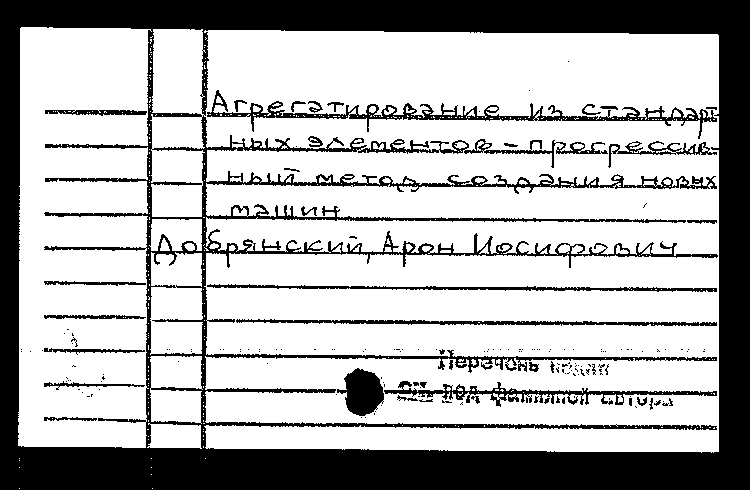 Агрегатирование из стандарт-
ных элементов - прогрессив-
ный метод создания новых
машин
Добрянский, Арон Иосифович
Перечень
см. под фамилией автора